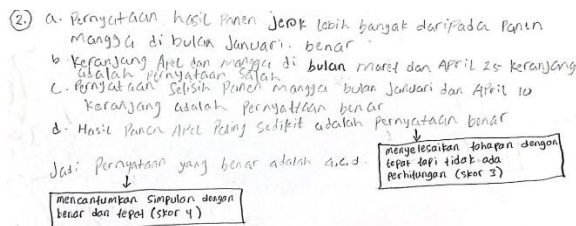 2. a. Pernyataan hasil Panen jeruk lebih banyak daripada Panen
Mangga di bulan Januari. benar
b Keranjang Apel dan mangga di bulan maret dan April 25 keranjang
adalah pernyataan salah
c. Pernyataan Selisih Panen mangga bulan Januari dan April 10
Keranjang adalah Pernyataan benar
d. Hasil Panen Apel Paling Sedikit adalah pernyataan benar
Jadi Pernyataan yang benar adalah a,c,d.
menyelesaikan tahapan dengan
tepat tapi tidak ada
perhitungan (skor 3)
mencantumkan simpulan dengan
benar dan tepat (skor 4)